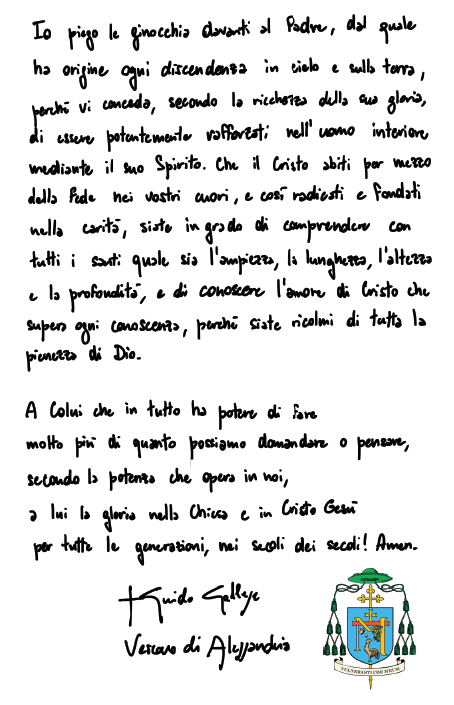 Io piego le ginocchia davanti al Padre, dal quale
ha origine ogni discendenza in cielo e sulla terra,
perché vi conceda, secondo la ricchezza della sua gloria,
di essere potentemente rafforzati nell'uomo interiore
mediante il suo Spirito. Che il Cristo abiti per mezzo
della fede nei vostri cuori, e così radicati e fondati
nella carità, siate in grado di comprendere con
tutti i santi quale sia l'ampiezza, la lunghezza, l'altezza
e la profondità, e di conoscere l'amore di Cristo che
supera ogni conoscenza, perché siate ricolmi di tutta la
pienezza di Dio.
A Colui che in tutto ha potere di fare
molto più di quanto possiamo domandare o pensare,
secondo la potenza che opera in noi,
a lui la gloria nella Chiesa e in Cristo Gesù
per tutte le generazioni, nei secoli dei secoli! Amen.
+ Guido Gallese
Vescovo di Alessandria
VULNERASTI COR MEUM